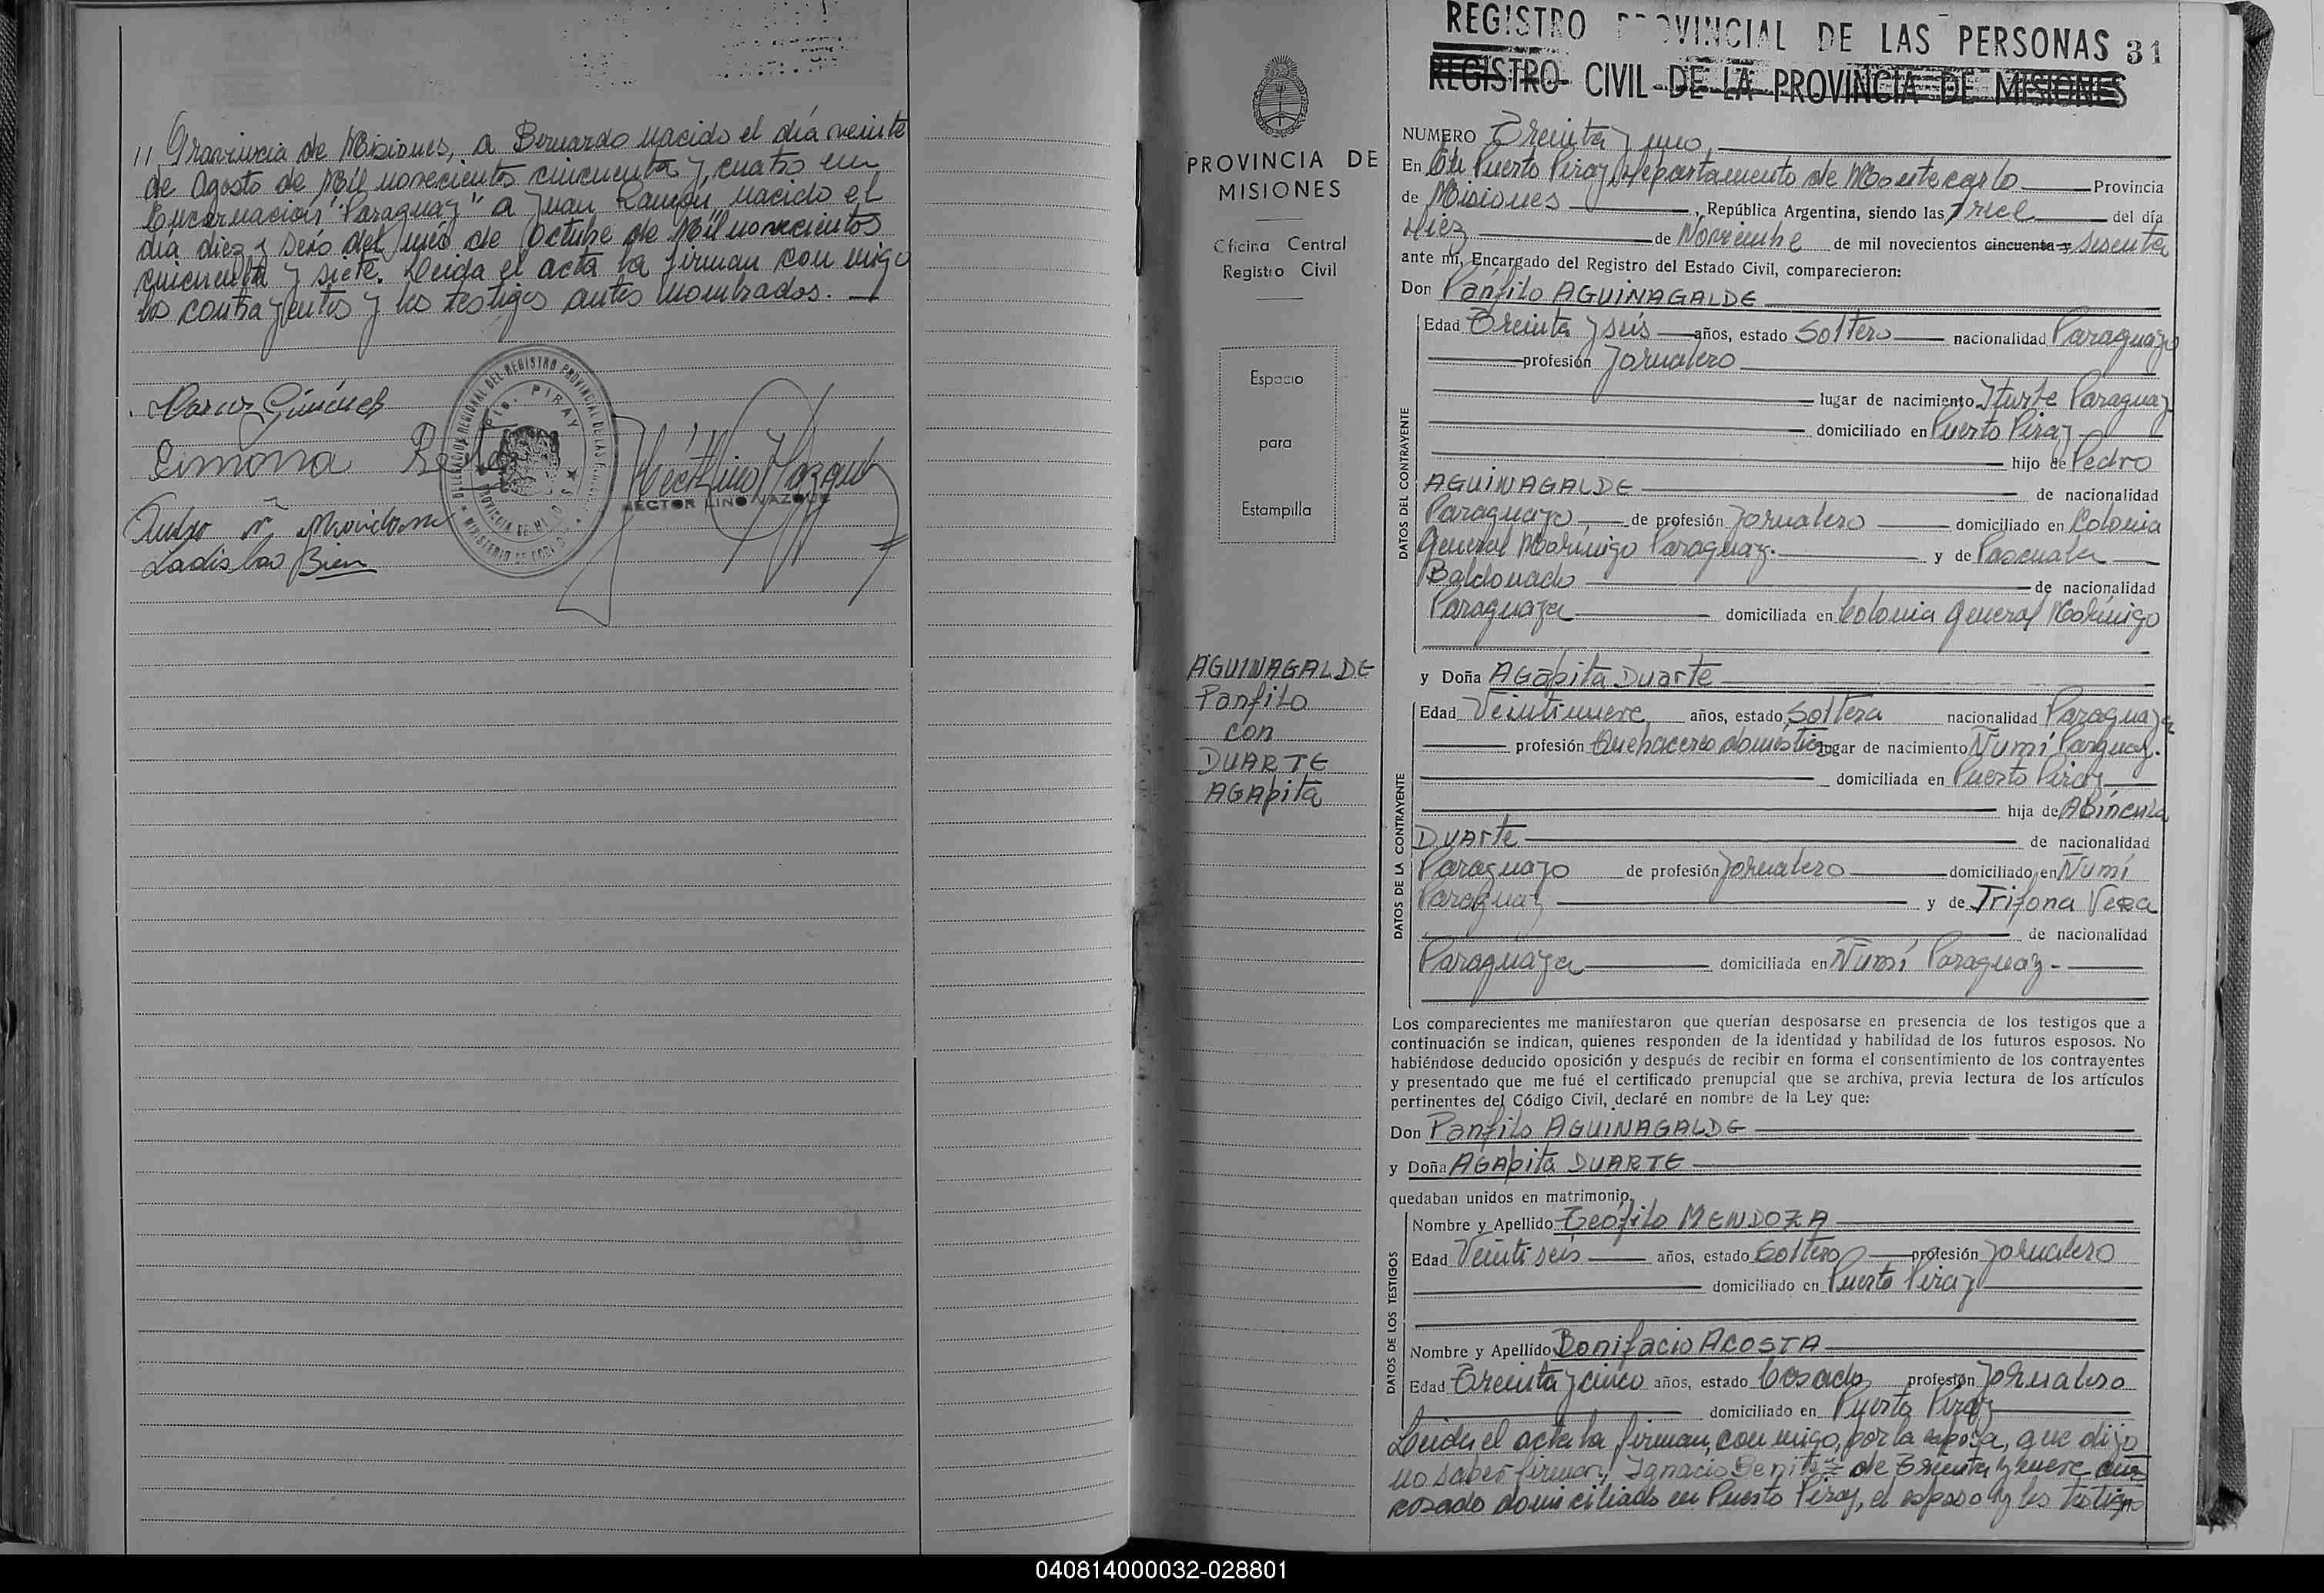 // Provincia de Misiones, a Bernardo nacido el día veinte
de Agosto de Mil novecientos cincuenta y cuatro en
Encarnación "Paraguay" a Juan Ramón, nacido el
día diez y seis del mes de Octubre de Mil novecientos
cincuenta y siete. Leida el acta la firman con migo
los contrayentes y los testigos antes nombrados.
Giménez
Simona
Ladislao Bien
HECTOR LINO VAZQUE
DELEGACION REGIONAL DEL REGISTRO PROVINCIAL DE LAS
PTO. PIRAY
PROVINCIA DE
PROVINCIA DE
MISIONES
Oficina Central
Registro Civil
Espacio
para
Estampilla
AGUINAGALDE
Panfilo
con
DUARTE
AGApita
REGISTRO PROVINCIAL DE LAS PERSONAS 31
REGISTRO CIVIL DE LA PROVINCIA DE MISIONES
NUMERO Treinta y uno
En Puerto Piray, Departamento de Montecarlo Provincia
de Misiones, República Argentina, siendo las Trece del día
Diez de Noviembre de mil novecientos cincuenta y sesenta
ante mí, Encargado del Registro del Estado Civil, comparecieron:
Don Panfilo AGUINAGALDE
Edad Treinta y seis años, estado Soltero nacionalidad Paraguayo
profesión Jornalero
lugar de nacimiento Iturbe Paraguay
domiciliado en Puerto Piray
hijo de Pedro
AGUINAGALDE de nacionalidad
Paraguayo, de profesión Jornalero domiciliado en Colonia
General Morínigo Paraguay. y de Pascuala
Baldonado de nacionalidad
Paraguaya domiciliada en Colonia General Morínigo
y Doña AGapita Duarte
Edad Veintinueve años, estado Soltera nacionalidad Paraguaya
profesión Quehaceres domésticos lugar de nacimiento Ñumí Paraguay.
domiciliada en Puerto Piray
hija de
DUArte de nacionalidad
Paraguayo de profesión Jornalero domiciliado en Ñumí
Paraguay y de Trifona Vera
de nacionalidad
Paraguaya domiciliada en Ñumí Paraguay.-
Los comparecientes me manifestaron que querían desposarse en presencia de los testigos que a
continuación se indican, quienes responden de la identidad y habilidad de los futuros esposos. No
habiéndose deducido oposición y después de recibir en forma el consentimiento de los contrayentes
y presentado que me fué el certificado prenupcial que se archiva, previa lectura de los artículos
pertinentes del Código Civil, declaré en nombre de la Ley que:
Don Panfilo AGUINAGALDE
y Doña AGApita DUARTE
quedaban unidos en matrimonio.
Nombre y Apellido Teófilo MENDOZA
Edad Veintiseis años, estado Soltero profesión Jornalero
domiciliado en Puerto Piray
Nombre y Apellido Bonifacio ACOSTA
Edad Treinta y cinco años, estado Casado profesión Jornalero
domiciliado en Puerto Piray
Leida el acta la firman, con migo, por la esposa, que dijo
no saber firmar, Ignacio Benitez de Treinta y nueve años
casado domiciliado en Puerto Piray, el esposo y los testigos
DATOS DEL CONTRAYENTE
DATOS DE LA CONTRAYENTE
DATOS DE LOS TESTIGOS
040814000032-028801